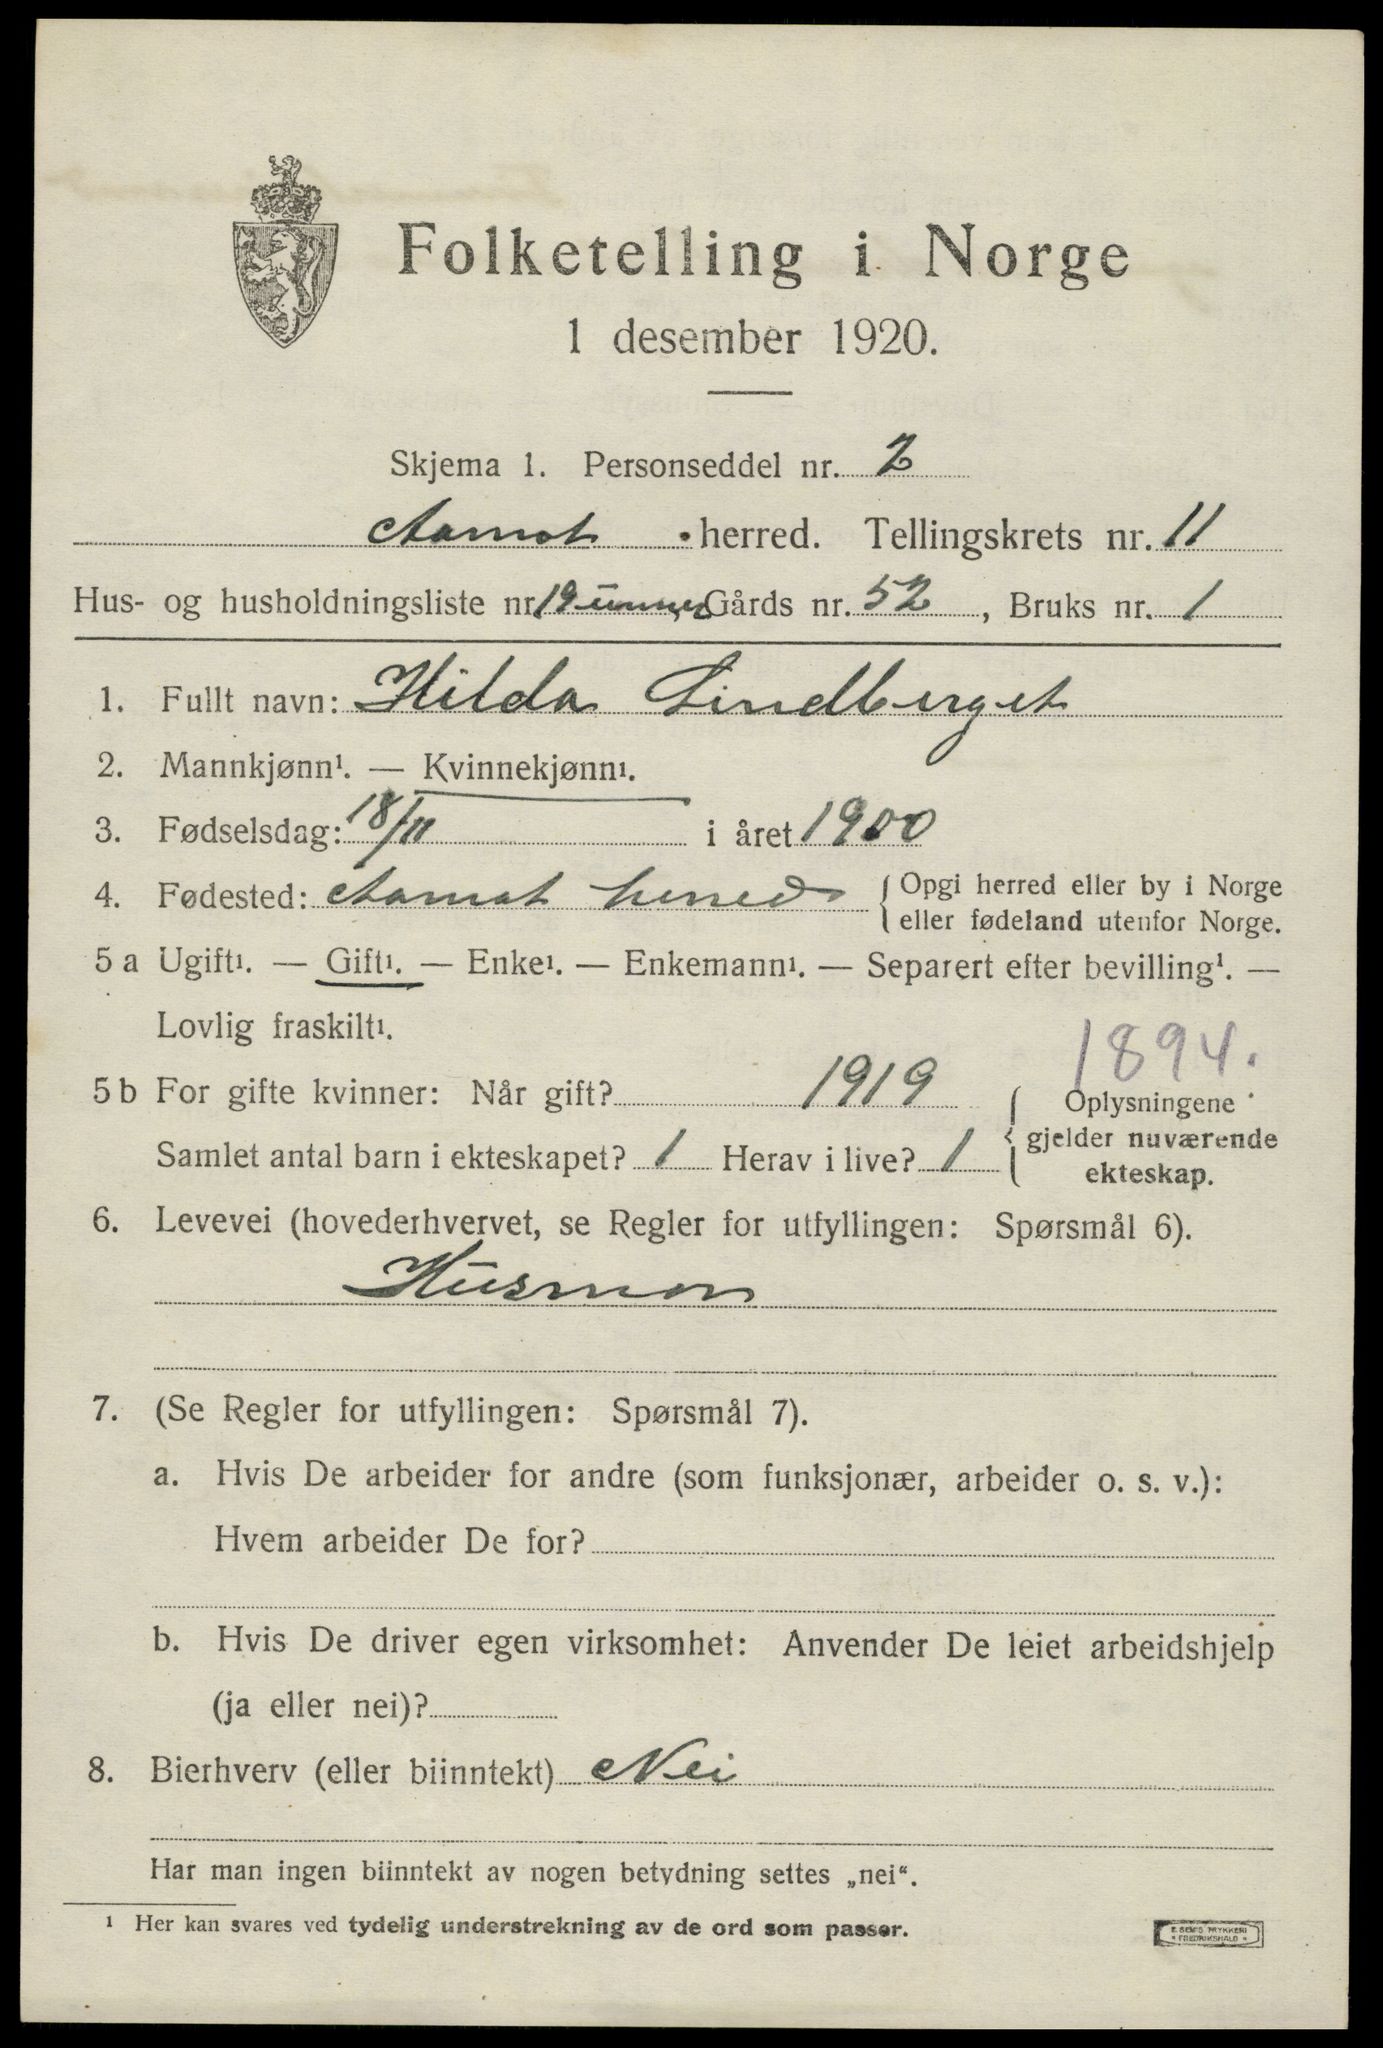 Folketelling i Norge
1 desember 1920.
Skjema 1. Personseddel nr. 2
Aamot herred. Tellingskrets nr. 11
Hus- og husholdningsliste nr. 19 , Gårds nr. 52 , Bruks nr. 1
1. Fullt navn: Hilda Lindberget
2. Mannkjønn¹. — Kvinnekjønn¹.
3. Fødselsdag: 18/11 i året 1900
4. Fødested: Aamot herred { Opgi herred eller by i Norge
eller fødeland utenfor Norge.
5 a Ugift¹. — Gift¹. — Enke¹. — Enkemann¹. — Separert efter bevilling¹. —
Lovlig fraskilt¹.
1894.
5 b For gifte kvinner: Når gift? 1919 { Oplysningene
gjelder nuværende
ekteskap.
Samlet antal barn i ekteskapet? 1 Herav i live? 1
6. Levevei (hovederhvervet, se Regler for utfyllingen: Spørsmål 6).
Husmor
7. (Se Regler for utfyllingen: Spørsmål 7).
a. Hvis De arbeider for andre (som funksjonær, arbeider o. s. v.):
Hvem arbeider De for?
b. Hvis De driver egen virksomhet: Anvender De leiet arbeidshjelp
(ja eller nei)?
8. Bierhverv (eller biinntekt) Nei
Har man ingen biinntekt av nogen betydning settes „nei“.
¹ Her kan svares ved tydelig understrekning av de ord som passer.
E. SEMS TRYKKERI
* FREDRIKSHALD *